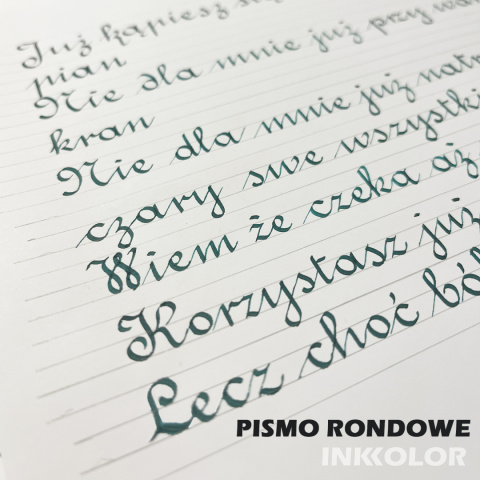 Już kąpiesz się
pian
Nie dla mnie już przy
kran
Nie dla mnie już
czary swe wszystkie
Wiem że czeka aż
Korzystasz już
Lecz choć ból
PISMO RONDOWE
INKKOLOR